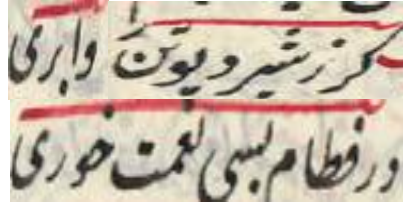 کز رشیر دیو تن وابری
در فطام بسی نعمت خوری